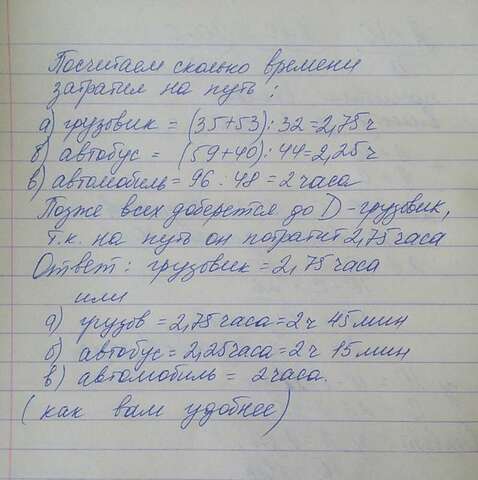 Посчитаем сколько времени
затратил на путь:
а) грузовик = (35+53):32=2,75ч
б) автобус = (59+40):44=2,25ч
в) автомобиль = 96:48=2 часа
Позже всех доберется до D-грузовик,
т.к. на путь он потратит 2,75часа
Ответ: грузовик = 2,75 часа
или
а) грузов = 2,75часа=2ч 45мин
б) автобус=2,25часа=2ч 15мин
в) автомобиль = 2часа.
(как вам удобнее)